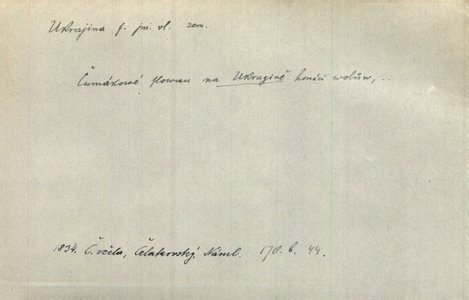 Ukrajina f. jm. vl. zem.
Čumákové slowau na Ukragině honáci wolůw,..
1834. Č. včela, Čelakovský, Násl. 170. b. 44.